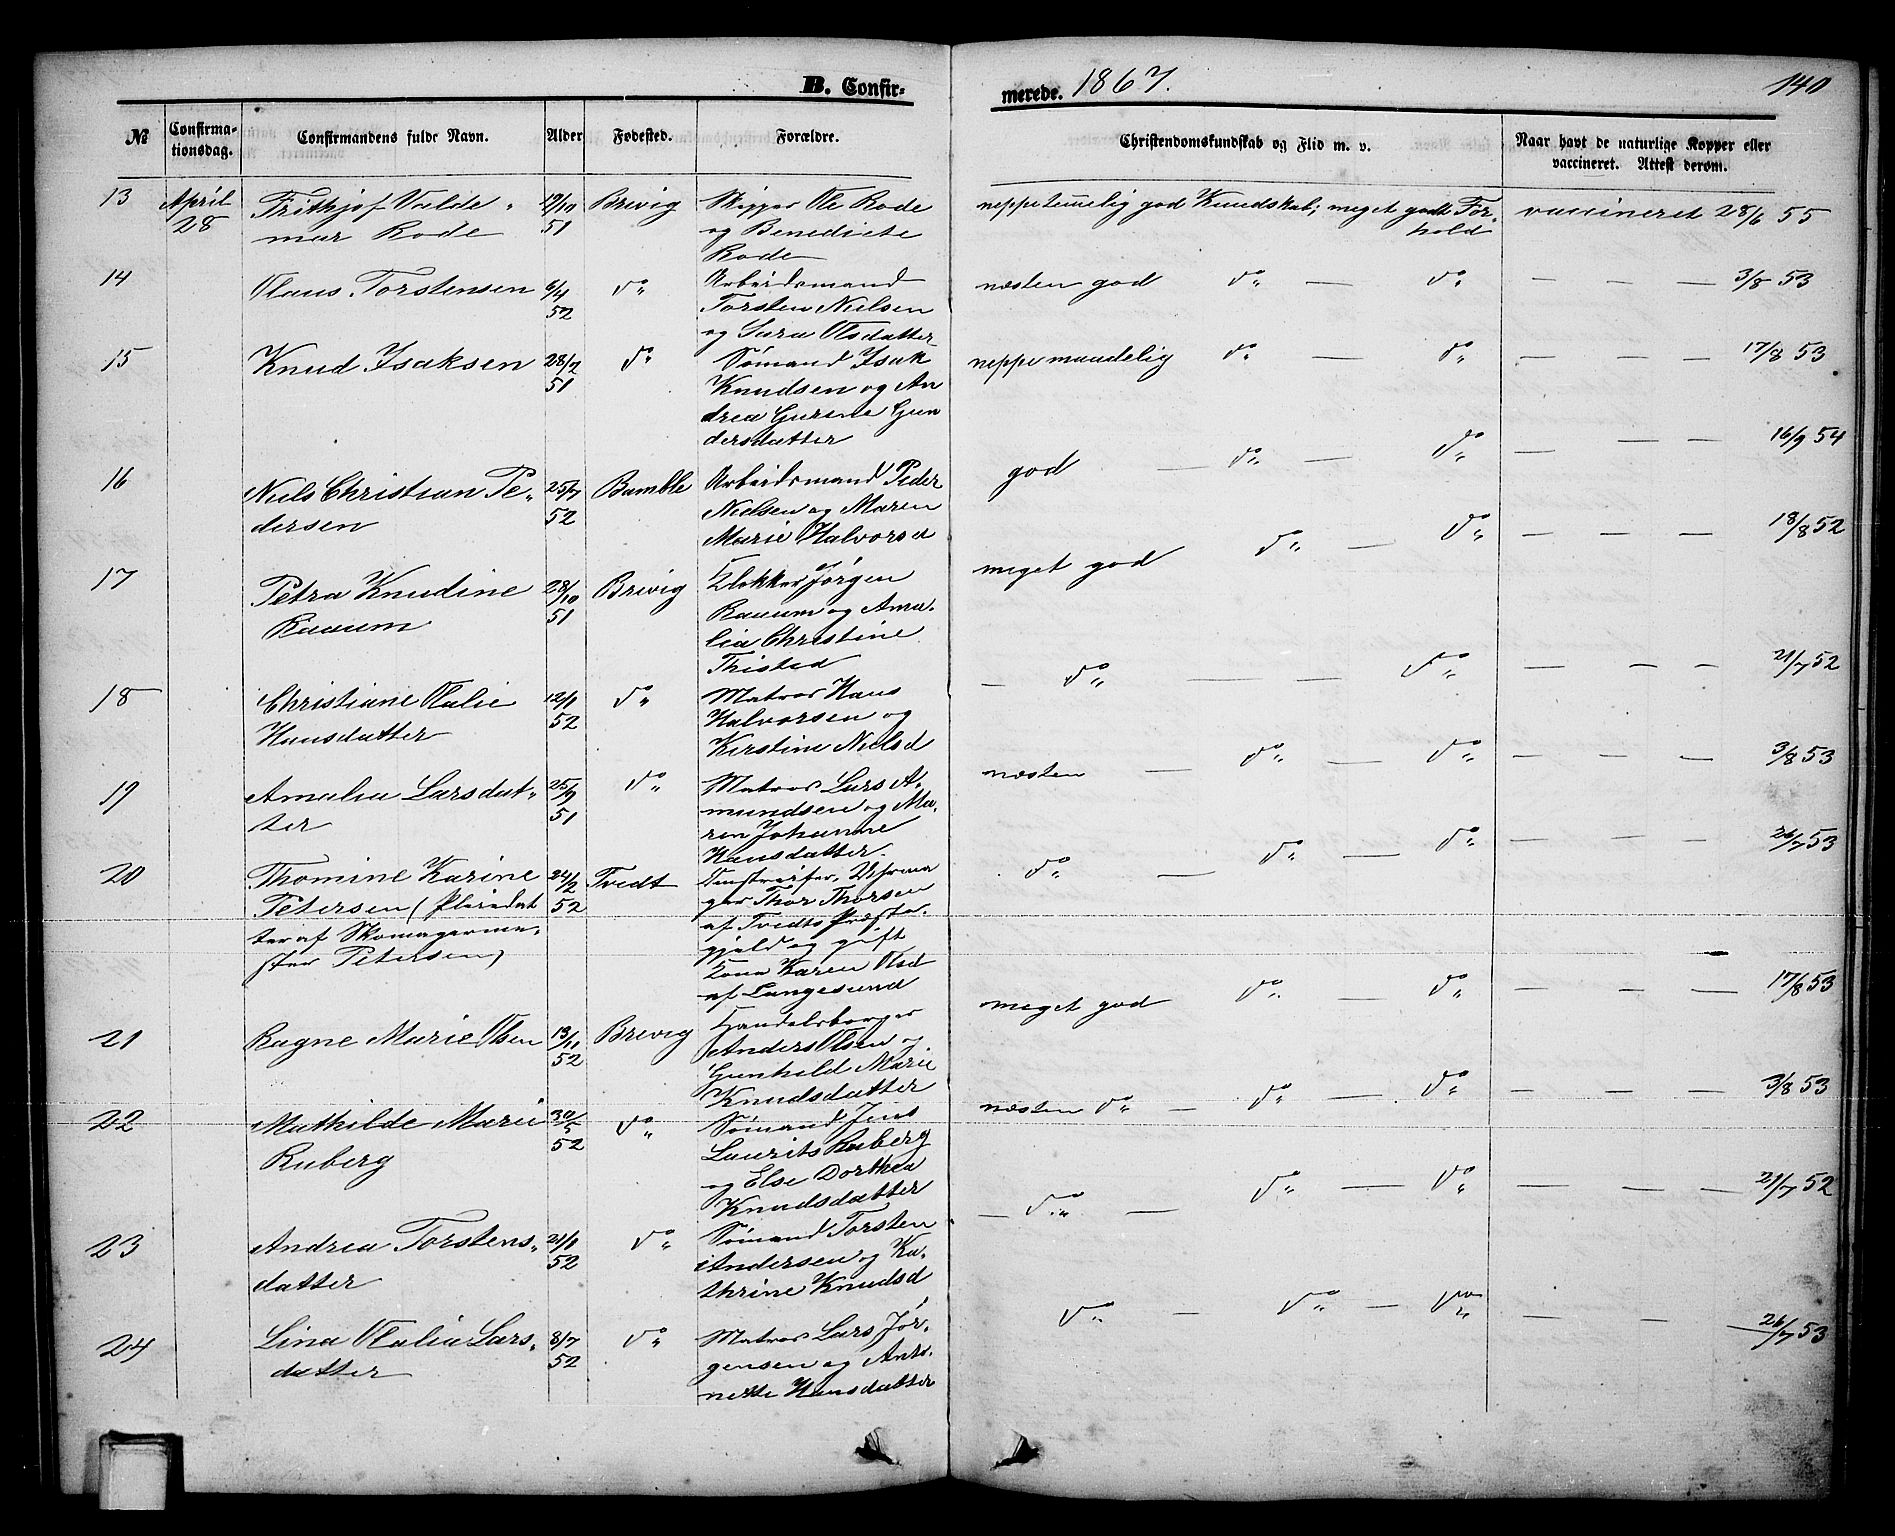 B. Confir-
merede. 1867.
140
№
Confirma-
tionsdag.
Confirmandens fulde Navn.
Alder
Fødested.
Forældre.
Christendomskundskab og Flid m. v.
Naar havt de naturlige Kopper eller
vaccineret. Attest derom.
13 April 28
Frithjof Valde-
mar Rode
51
Brevig
Skipper Ole Rode
og Benedicte
Rode
neppe temmelig god Kundskab; meget godt For-
hold
vaccineret 28/6 55
14
Olaus Torstensen
6/4
52
do
Arbeidsmand
Torsten Nielsen
og Sara Olsdatter
næsten god do — do — — — 3/8 53
15
Knud Isaksen
28/7
51
do
Sømand Isak
Knudsen og An
drea Gurine Gun
dersdatter
neppe maadelig do — do — — — 17/8 53
16
Niels Christian Pe-
dersen
25/7
52
Bamble
Arbeidsmand Peder
Nielsen og Maren
Marie Halvorsd
god — do — do — — — 16/9 54
17
Petra Knudine
Raaum
28/10
51
Brevig
Klokker Jørgen
Raaum og Ama-
lia Christine
Thistad
meget god do — do — — — 18/8 52
18
Christiane Olalie
Hansdatter
12/1
52
do
Matros Hans
Halvorsen og
Kirstine Nielsd
— do — — do — — — 21/7 52
19
Amalia Larsdat-
ter
25/9
51
do
Matros Lars A-
mundsen og Ma-
ren Johanne
Hansdatter.
næsten — do — do — — — 3/8 53
20
Thomine Karine
Petersen (Pleiedat
ter af Skomagerme-
ster Petersen)
24/2
52
Tvedt
Thor Thorsen
af Tvedts Præste-
gjeld og gift
Kone Karen Olsd
af Langesund
do — do — do — — — 26/7 53
21
Ragne Marie Olsen
13/11
52
Brevig
Handelsborger
Anders Olsen og
Gunhild Marie
Knudsdatter
meget god do — do — — — 17/8 53
22
Mathilde Marie
Ruberg
30/5
52
do
Sømand Jens
Laurits Ruberg
og Else Dorthea
Knudsdatter
næsten do — do — do — — — 3/8 53
23
Andrea Torstens-
datter
21/1
52
do
Sømand Torsten
Andersen og Ka-
thrine Knudsd
— do — do — do — — — 21/7 52
24
Lina Olalia Lars-
datter
8/7
52
do
Matros Lars Jør-
gensen og Anto-
nette Hansdatter
do — do — do — — 26/7 53